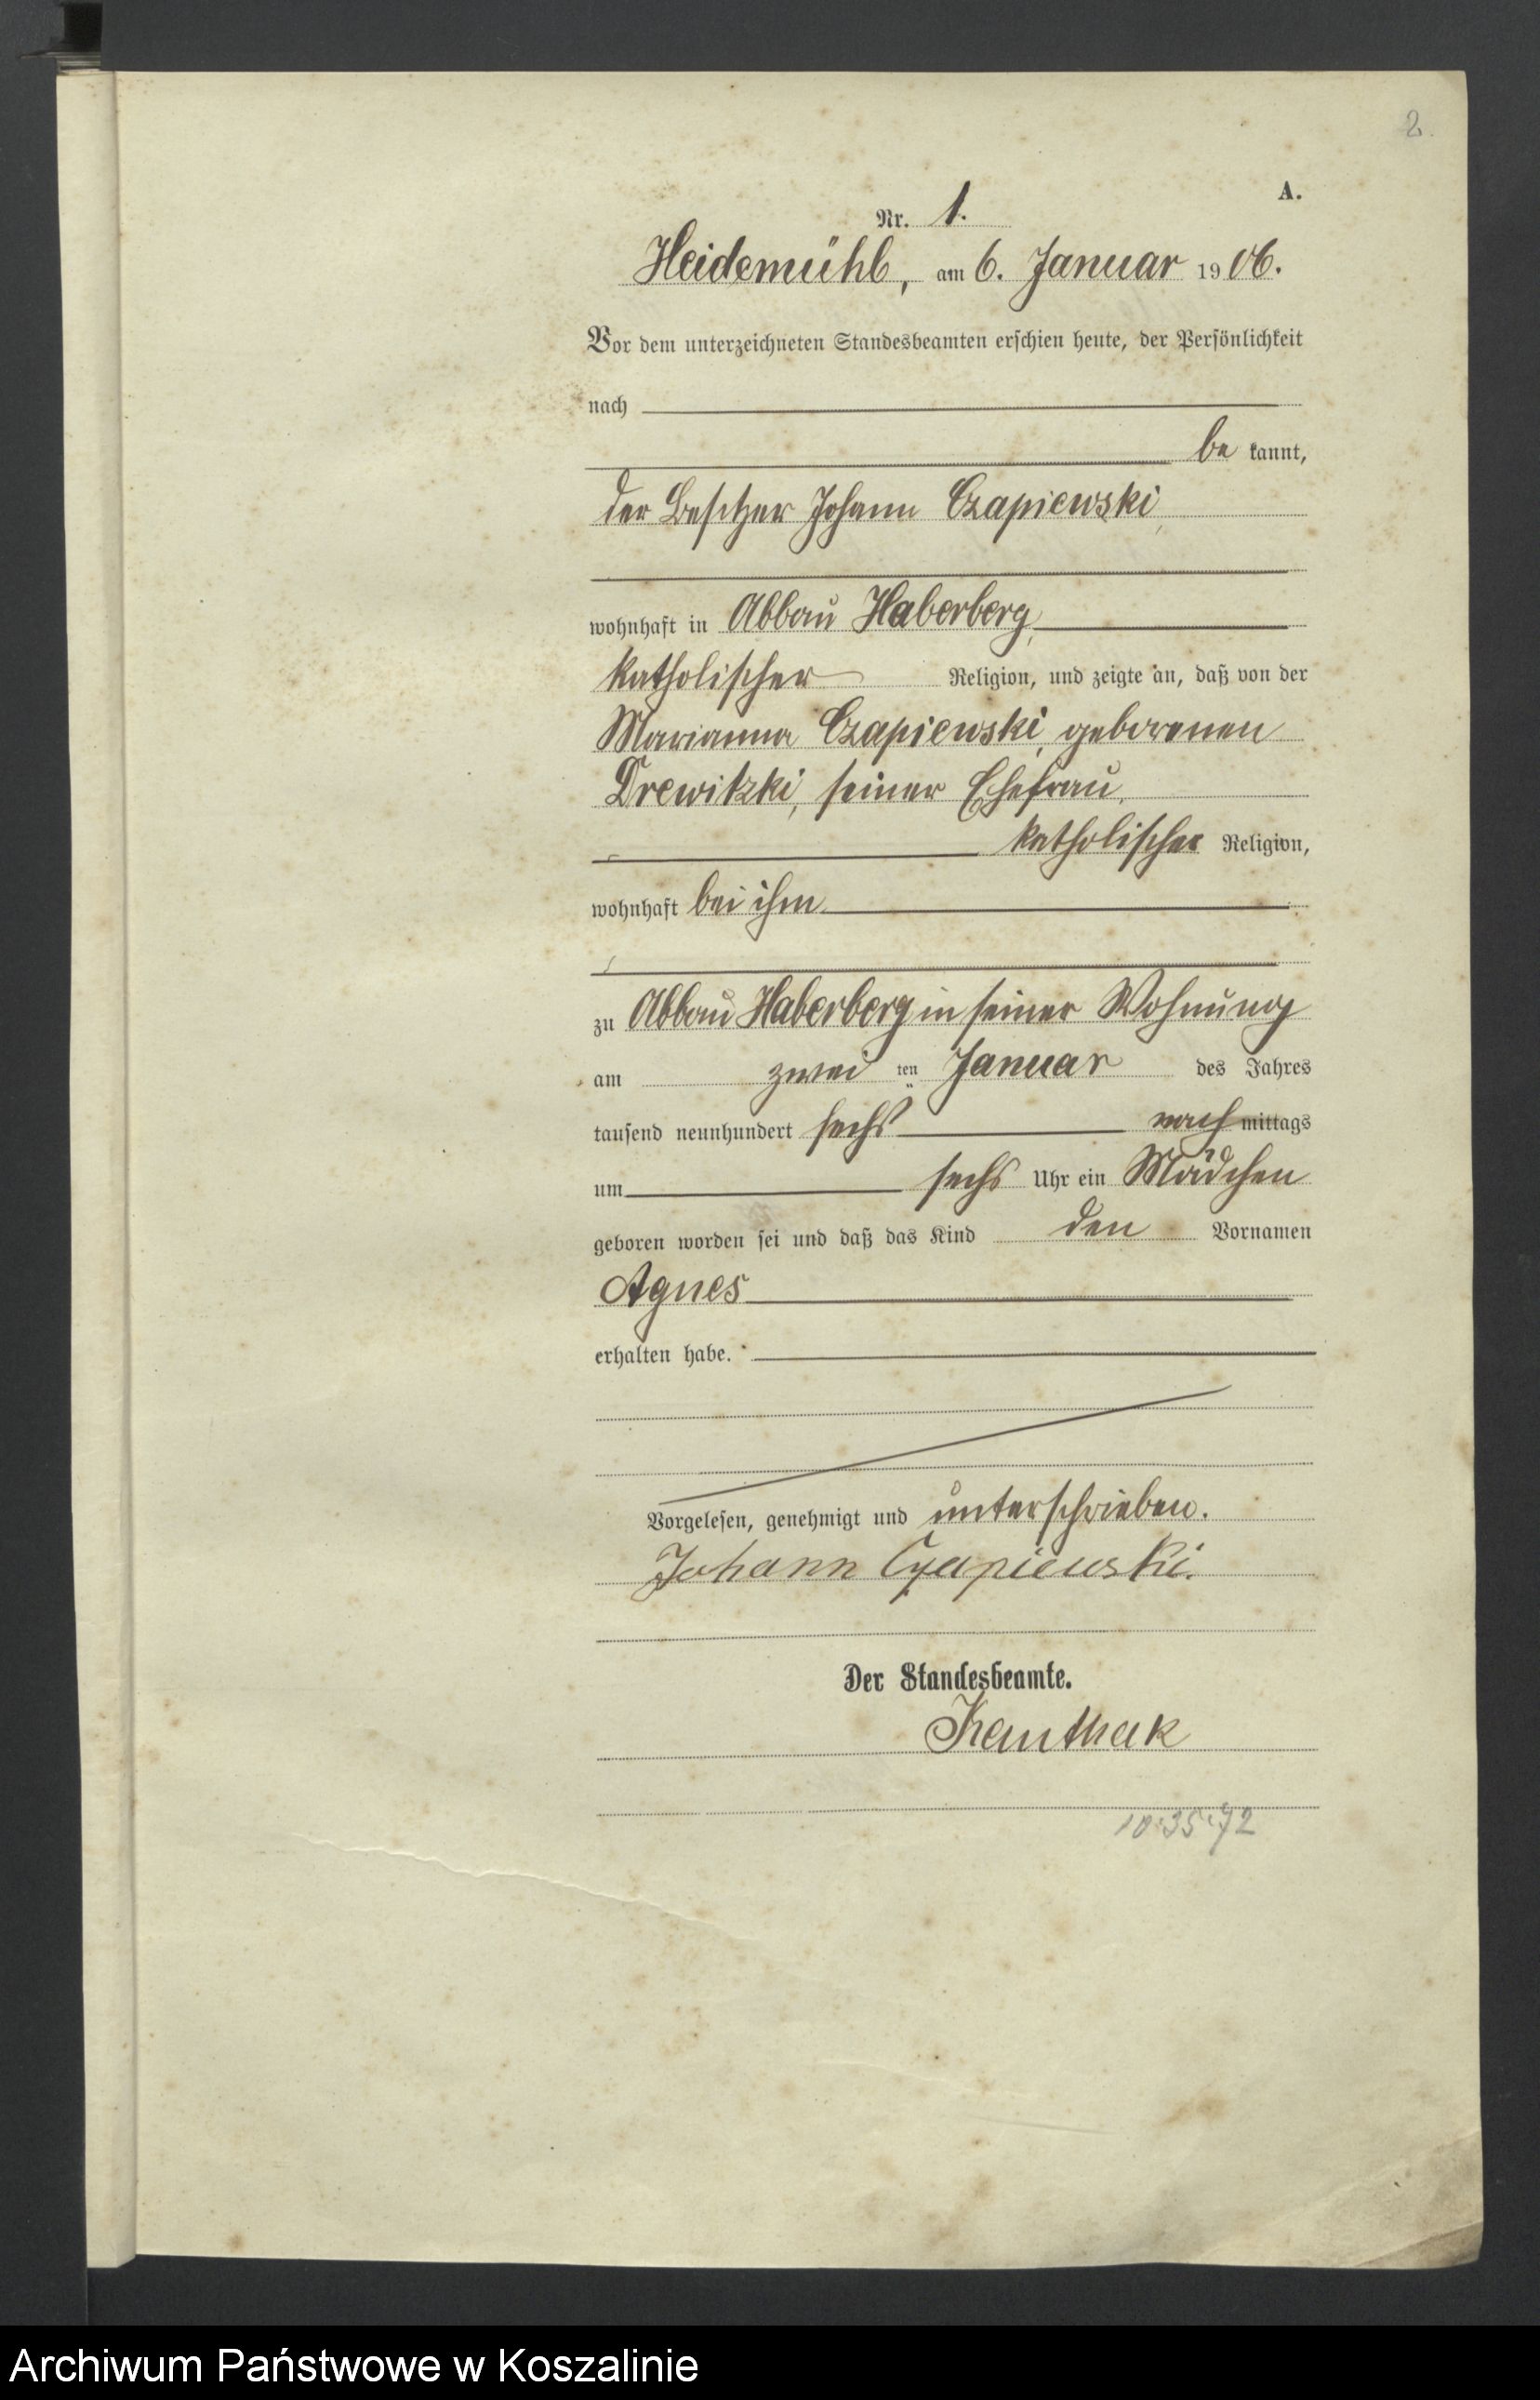 2.
A.
Nr. 1.
Heidemühl, am 6. Januar 1906.
Vor dem unterzeichneten Standesbeamten erschien heute, der Persönlichkeit
nach
be kannt,
der Besitzer Johann Czapiewski,
wohnhaft in Abbau Haberberg,
katholischer Religion, und zeigte an, daß von der
Marianna Czapiewski, geborenen
Drewitzki, seiner Ehefrau,
katholischer Religion,
wohnhaft bei ihm
zu Abbau Haberberg in seiner Wohnung
am zwei ten Januar des Jahres
tausend neunhundert sechs nach mittags
um sechs Uhr ein Mädchen
geboren worden sei und daß das Kind den Vornamen
Agnes
erhalten habe.
Vorgelesen, genehmigt und unterschrieben.
Johann Czapiewski.
Der Standesbeamte.
Kauthak
10.35.72
Archiwum Państwowe w Koszalinie